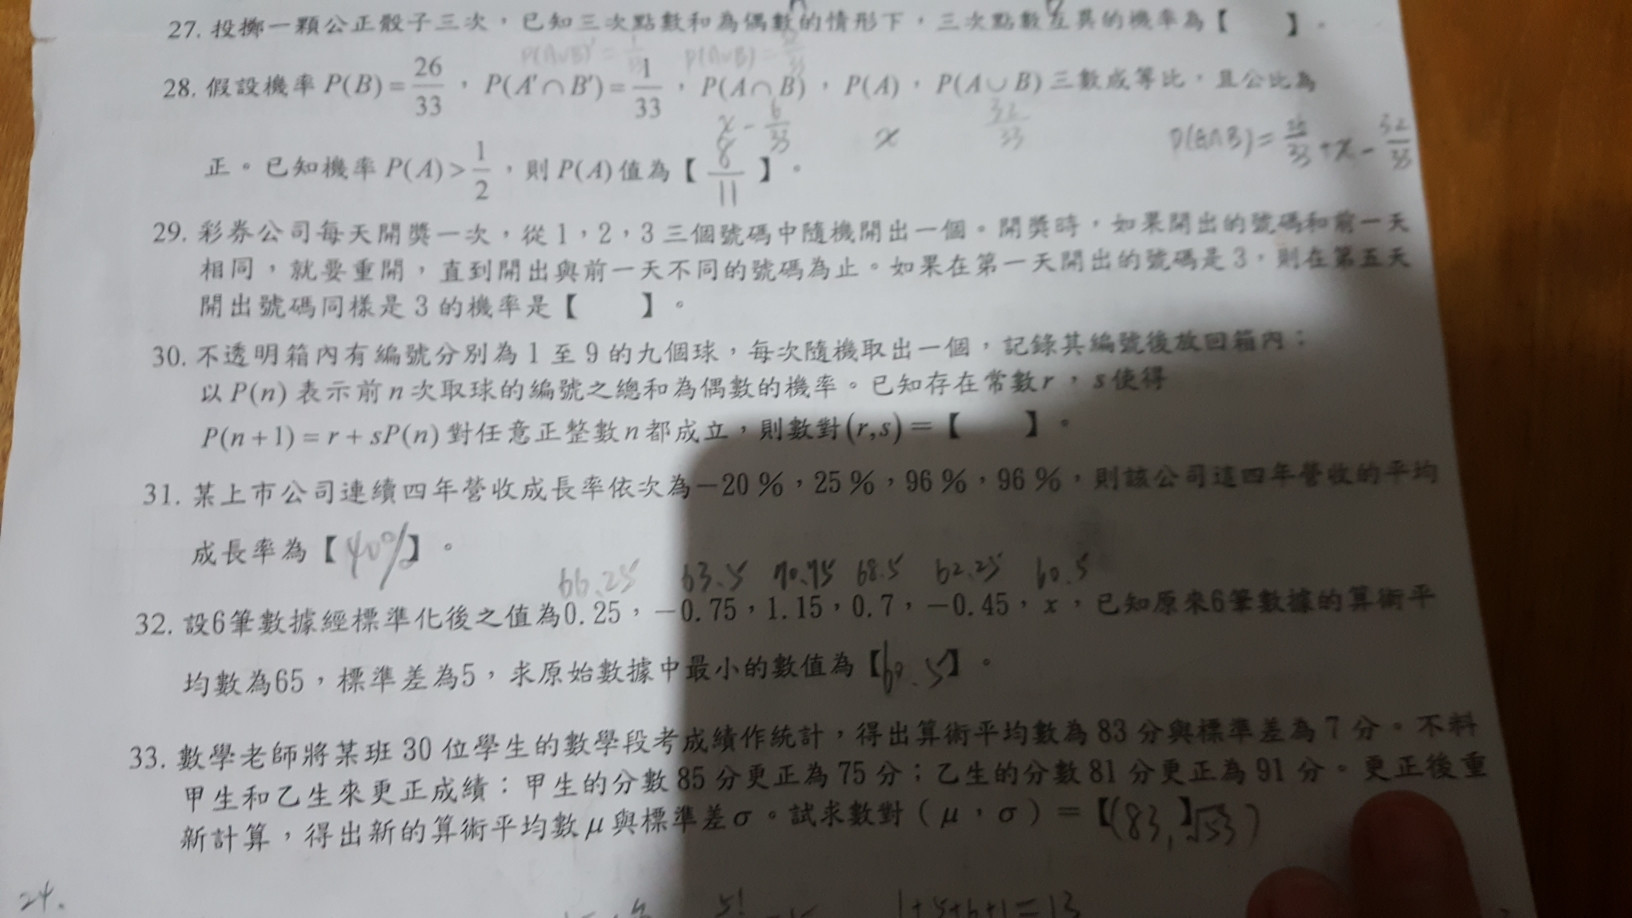 27. 投擲一顆公正骰子三次，已知三次點數和為偶數的情形下，三次點數互異的機率為【　】。
28. 假設機率 P(B)=26/33，P(A'∩B')=1/33，P(A∩B)，P(A)，P(A∪B)三數成等比，且公比為
x - 6/33 x 32/33 P(A∩B) = 26/33 + x - 32/33
正。已知機率 P(A)>1/2，則 P(A) 值為【8/11】。
29. 彩券公司每天開獎一次，從 1，2，3 三個號碼中隨機開出一個。開獎時，如果開出的號碼和前一天
相同，就要重開，直到開出與前一天不同的號碼為止。如果在第一天開出的號碼是 3，則在第五天
開出號碼同樣是 3 的機率是【　】。
30. 不透明箱內有編號分別為 1 至 9 的九個球，每次隨機取出一個，記錄其編號後放回箱內；
以 P(n) 表示前 n 次取球的編號之總和為偶數的機率。已知存在常數 r，s 使得
P(n+1)=r+sP(n) 對任意正整數 n 都成立，則數對(r,s)=【　】。
31. 某上市公司連續四年營收成長率依次為－20 %，25 %，96 %，96 %，則該公司這四年營收的平均
成長率為【40%】。
66.25 63.5 70.75 68.5 62.25 60.5
32. 設6筆數據經標準化後之值為0.25，－0.75，1.15，0.7，－0.45，x，已知原來6筆數據的算術平
均數為65，標準差為5，求原始數據中最小的數值為【60.5】。
33. 數學老師將某班 30 位學生的數學段考成績作統計，得出算術平均數為 83 分與標準差為 7 分。不料
甲生和乙生來更正成績：甲生的分數 85 分更正為 75 分；乙生的分數 81 分更正為 91 分。更正後重
新計算，得出新的算術平均數 μ 與標準差 σ。試求數對（μ，σ）=【(83,√53)】
24. 1+5+6+1=13